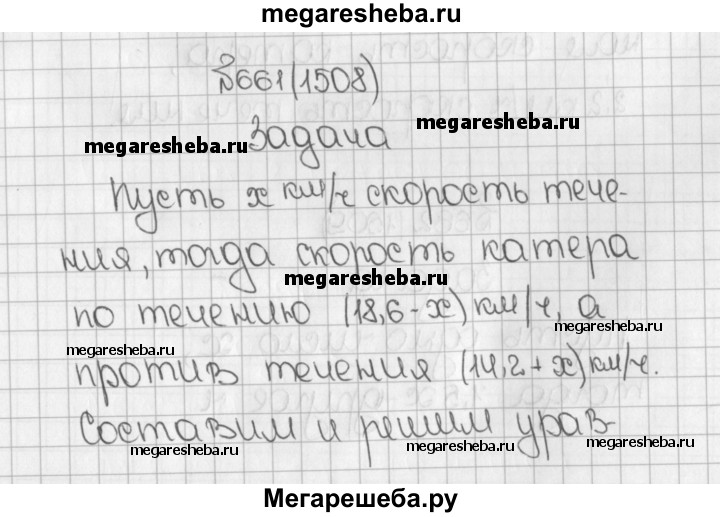 megaresheba.ru
№661(1508)
megaresheba.ru
Задача
megaresheba.ru
Пусть x км/ч скорость тече-
ния, тогда скорость катера
megaresheba.ru
по течению (18,6 - x) км/ч, а
megaresheba.ru
megaresheba.ru
против течения (14,2 + x) км/ч.
Составим и решим урав-
megaresheba.ru
megaresheba.ru
Мегарешеба.ру